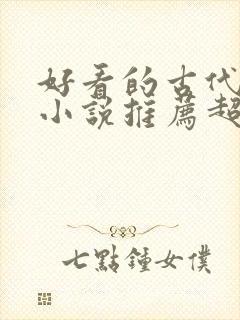 好看的古代
小说推薦超
七點鐘女僕